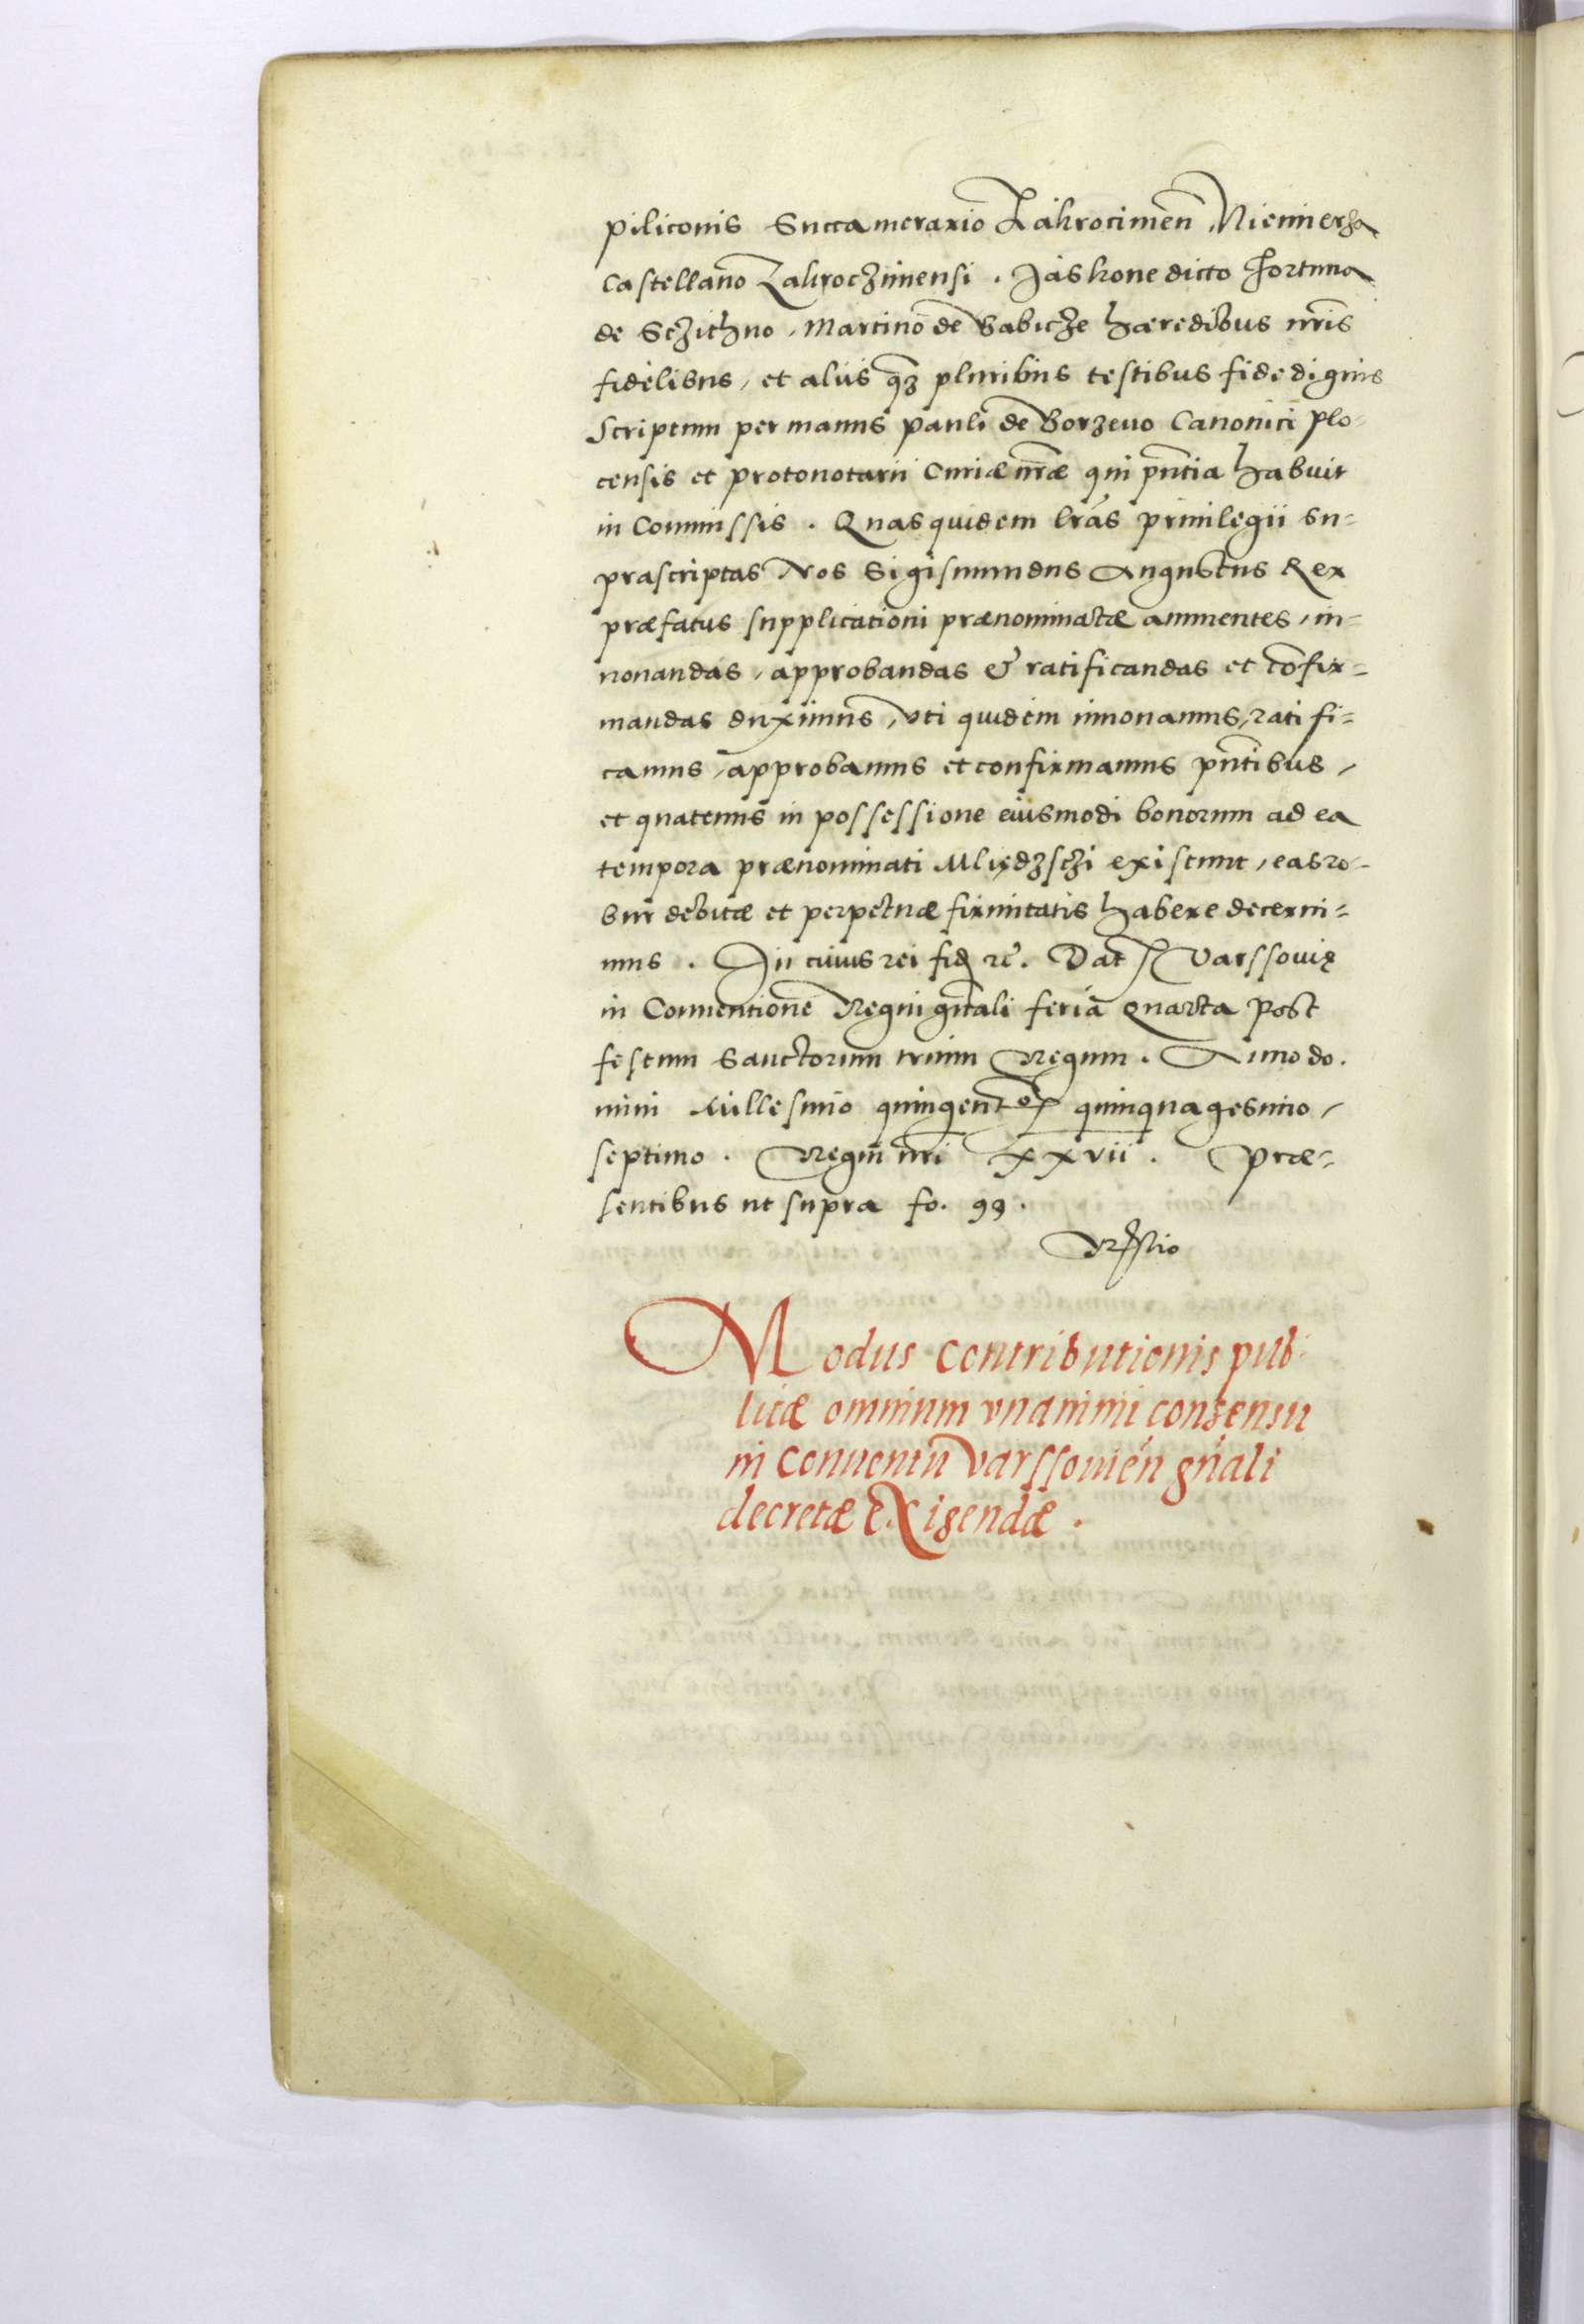 piliconis Succamerario Zakrocimen̄ Niemierza
Castellano Zakroczimensi. Jaskone dicto Fortuna
de Sczithno, Martino de Babicze hæredibus nr̄is
fidelibus, et aliis qȝ pluribus testibus fide dignis
Scriptum per manus pauli de Borzeuo Canonici plo-
censis et protonotarii Curiæ nr̄æ qui pn̄tia habuit
in Commissis. Quas quidem lr̄as priuilegii su=
prascriptas Nos Sigismundus Augustus Rex
præfatus supplicationi prænominatæ annuentes, in=
nouandas, approbandas & ratificandas et cōfir=
mandas duximus, vti quidem innouamus, ratifi=
camus, approbamus et confirmamus pn̄tibus,
et quatenus in possessione eiusmodi bonorum ad ea
tempora prænominati Mliędzsczi existunt, eas ro-
bur debitæ et perpetuæ firmitatis habere decerni=
mus. In cuius rei fid ꝛc̄. Dat Varssovię
in Conuentione Regni gn̄ali feria Quarta post
festum Sanctorum trium Regum. Anno do.
mini Millesimo quingent° quinquagesimo,
septimo. Regni nr̄i xxvii. Præ=
sentibus ut supra fo. 99.
Modus contributionis pub-
licæ omnium vnanimi consensu
in Conuentu Varssouien̄ gn̄ali
decretæ exigendæ.